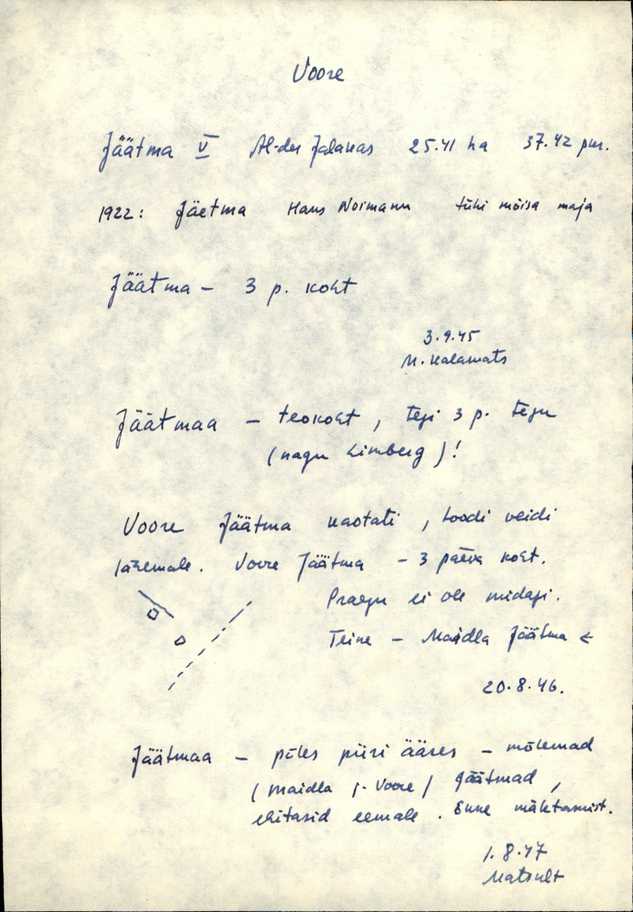 Voore
Jäätma V Al-der Jalakas 25.41 ha 37.42 pm.
1922: Jäetma Hans Noimann tühi mõisa maja
Jäätma – 3 p. koht
3.9.45
M. Kalamats
Jäätmaa – teokoht, tegi 3 p. tegu
(nagu Limberg)!
Voore Jäätma kaotati, toodi veidi
lähemale. Voore Jäätma – 3 päeva koht.
Praegu ei ole midagi.
Teine – Maidla Jäätma ←
20.8.46.
Jäätmaa – põles piiri ääres – mõlemad
(Maidla j. Voore) Jäätmad,
ehitasid eemale. Enne mäletamist.
1.8.47